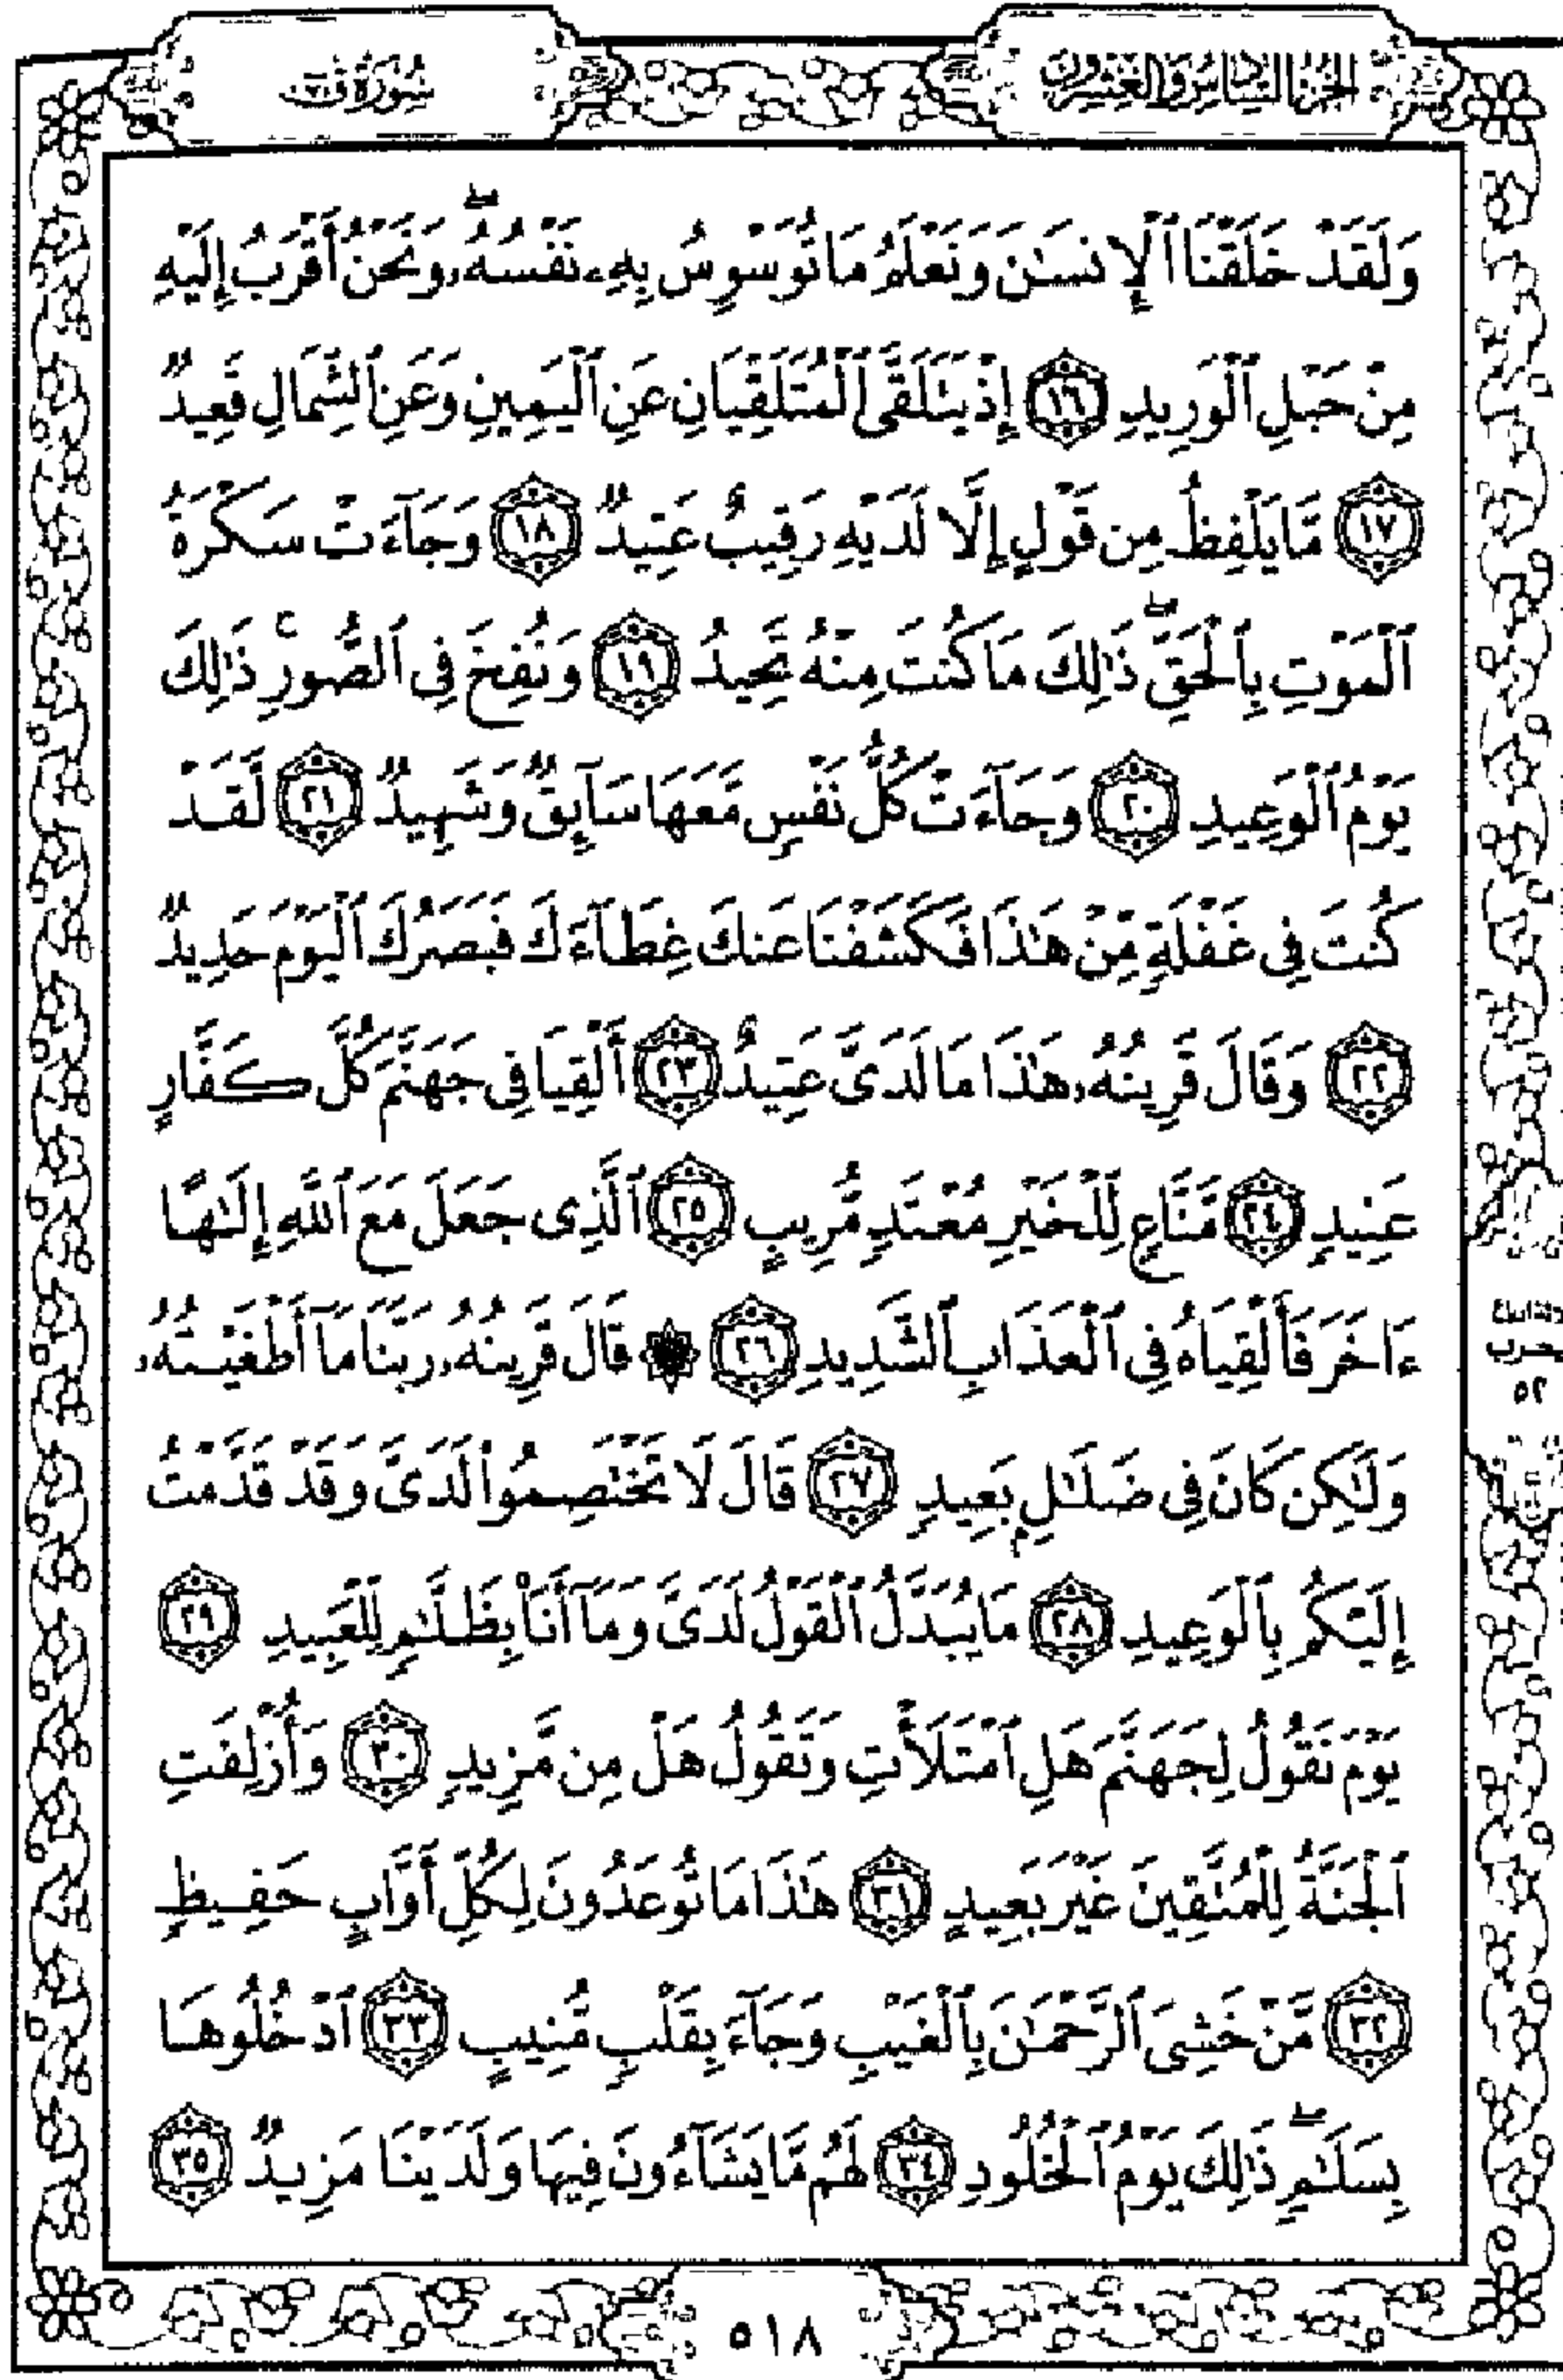 الجزء السادس والعشرون
سورة ق
وَلَقَدْ خَلَقْنَا ٱلْإِنسَـٰنَ وَنَعْلَمُ مَا تُوَسْوِسُ بِهِۦ نَفْسُهُۥ ۖ وَنَحْنُ أَقْرَبُ إِلَيْهِ
مِنْ حَبْلِ ٱلْوَرِيدِ ١٦ إِذْ يَتَلَقَّى ٱلْمُتَلَقِّيَانِ عَنِ ٱلْيَمِينِ وَعَنِ ٱلشِّمَالِ قَعِيدٌ
١٧ مَّا يَلْفِظُ مِن قَوْلٍ إِلَّا لَدَيْهِ رَقِيبٌ عَتِيدٌ ١٨ وَجَآءَتْ سَكْرَةُ
ٱلْمَوْتِ بِٱلْحَقِّ ۖ ذَٰلِكَ مَا كُنتَ مِنْهُ تَحِيدُ ١٩ وَنُفِخَ فِى ٱلصُّورِ ۚ ذَٰلِكَ
يَوْمُ ٱلْوَعِيدِ ٢٠ وَجَآءَتْ كُلُّ نَفْسٍ مَّعَهَا سَآئِقٌ وَشَهِيدٌ ٢١ لَّقَدْ
كُنتَ فِى غَفْلَةٍ مِّنْ هَـٰذَا فَكَشَفْنَا عَنكَ غِطَآءَكَ فَبَصَرُكَ ٱلْيَوْمَ حَدِيدٌ
٢٢ وَقَالَ قَرِينُهُۥ هَـٰذَا مَا لَدَىَّ عَتِيدٌ ٢٣ أَلْقِيَا فِى جَهَنَّمَ كُلَّ كَفَّارٍ
عَنِيدٍ ٢٤ مَّنَّاعٍ لِّلْخَيْرِ مُعْتَدٍ مُّرِيبٍ ٢٥ ٱلَّذِى جَعَلَ مَعَ ٱللَّهِ إِلَـٰهًا
ءَاخَرَ فَأَلْقِيَاهُ فِى ٱلْعَذَابِ ٱلشَّدِيدِ ٢٦ ۞ قَالَ قَرِينُهُۥ رَبَّنَا مَآ أَطْغَيْتُهُۥ
وَلَـٰكِن كَانَ فِى ضَلَـٰلٍۭ بَعِيدٍ ٢٧ قَالَ لَا تَخْتَصِمُوا۟ لَدَىَّ وَقَدْ قَدَّمْتُ
إِلَيْكُم بِٱلْوَعِيدِ ٢٨ مَا يُبَدَّلُ ٱلْقَوْلُ لَدَىَّ وَمَآ أَنَا۠ بِظَلَّـٰمٍ لِّلْعَبِيدِ ٢٩
يَوْمَ نَقُولُ لِجَهَنَّمَ هَلِ ٱمْتَلَأْتِ وَتَقُولُ هَلْ مِن مَّزِيدٍ ٣٠ وَأُزْلِفَتِ
ٱلْجَنَّةُ لِلْمُتَّقِينَ غَيْرَ بَعِيدٍ ٣١ هَـٰذَا مَا تُوعَدُونَ لِكُلِّ أَوَّابٍ حَفِيظٍ
٣٢ مَّنْ خَشِىَ ٱلرَّحْمَـٰنَ بِٱلْغَيْبِ وَجَآءَ بِقَلْبٍ مُّنِيبٍ ٣٣ ٱدْخُلُوهَا
بِسَلَـٰمٍ ۖ ذَٰلِكَ يَوْمُ ٱلْخُلُودِ ٣٤ لَهُم مَّا يَشَآءُونَ فِيهَا وَلَدَيْنَا مَزِيدٌ ٣٥
الحزب
٥٢
٥١٨